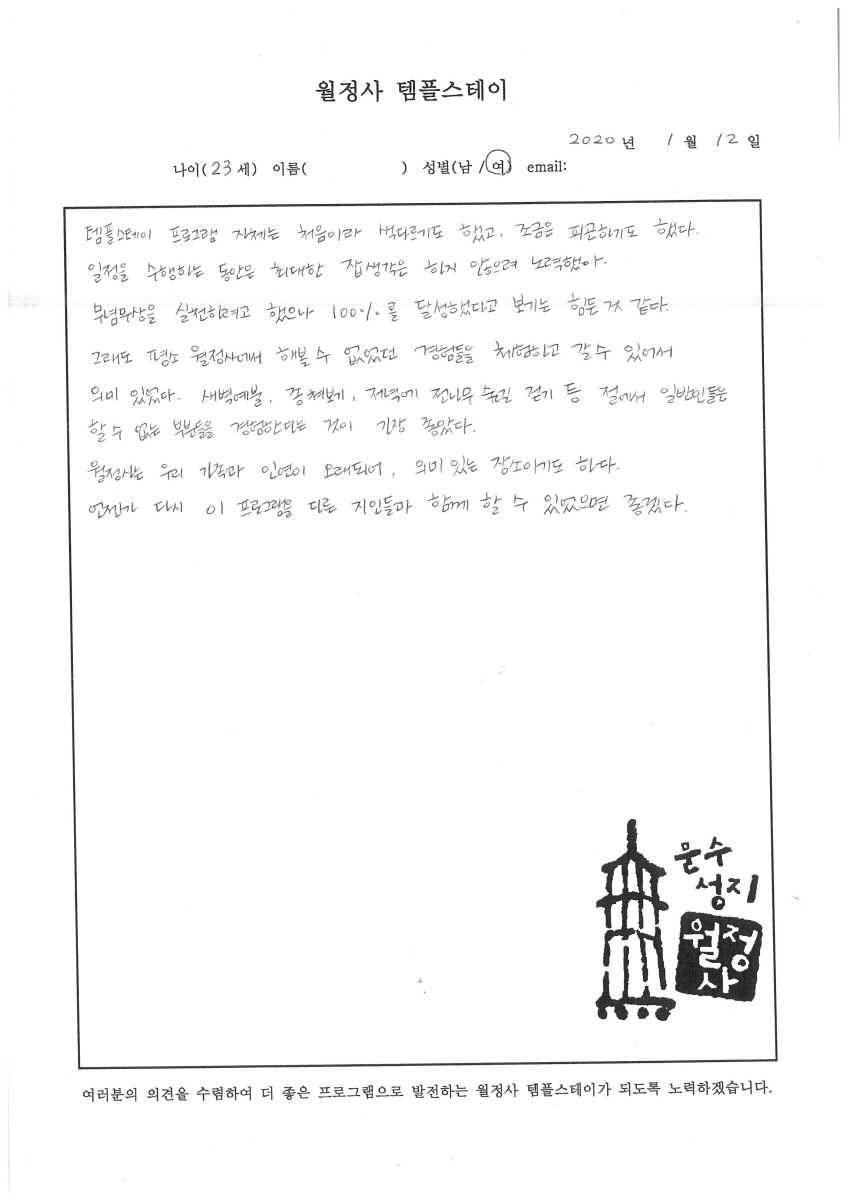 월정사 템플스테이
2020 년 1 월 12 일
나이(23 세) 이름( ) 성별(남 / 여) email:
템플스테이 프로그램 자체는 처음이라 색다르기도 했고, 조금은 피곤하기도 했다.
일정을 수행하는 동안은 최대한 잡생각은 하지 않으려 노력했다.
무념무상을 실천하려고 했으나 100%를 달성했다고 보기는 힘든 것 같다.
그래도 평소 월정사에서 해볼 수 없었던 경험들을 체험하고 갈 수 있어서
의미 있었다. 새벽예불, 종쳐보기, 저녁에 전나무 숲길 걷기 등 절에서 일반인들은
할 수 없는 부분들을 경험한다는 것이 가장 좋았다.
월정사는 우리 가족과 인연이 오래되어, 의미 있는 장소이기도 하다.
언젠가 다시 이 프로그램을 다른 지인들과 함께 할 수 있었으면 좋겠다.
문수
성지
월정
사
여러분의 의견을 수렴하여 더 좋은 프로그램으로 발전하는 월정사 템플스테이가 되도록 노력하겠습니다.